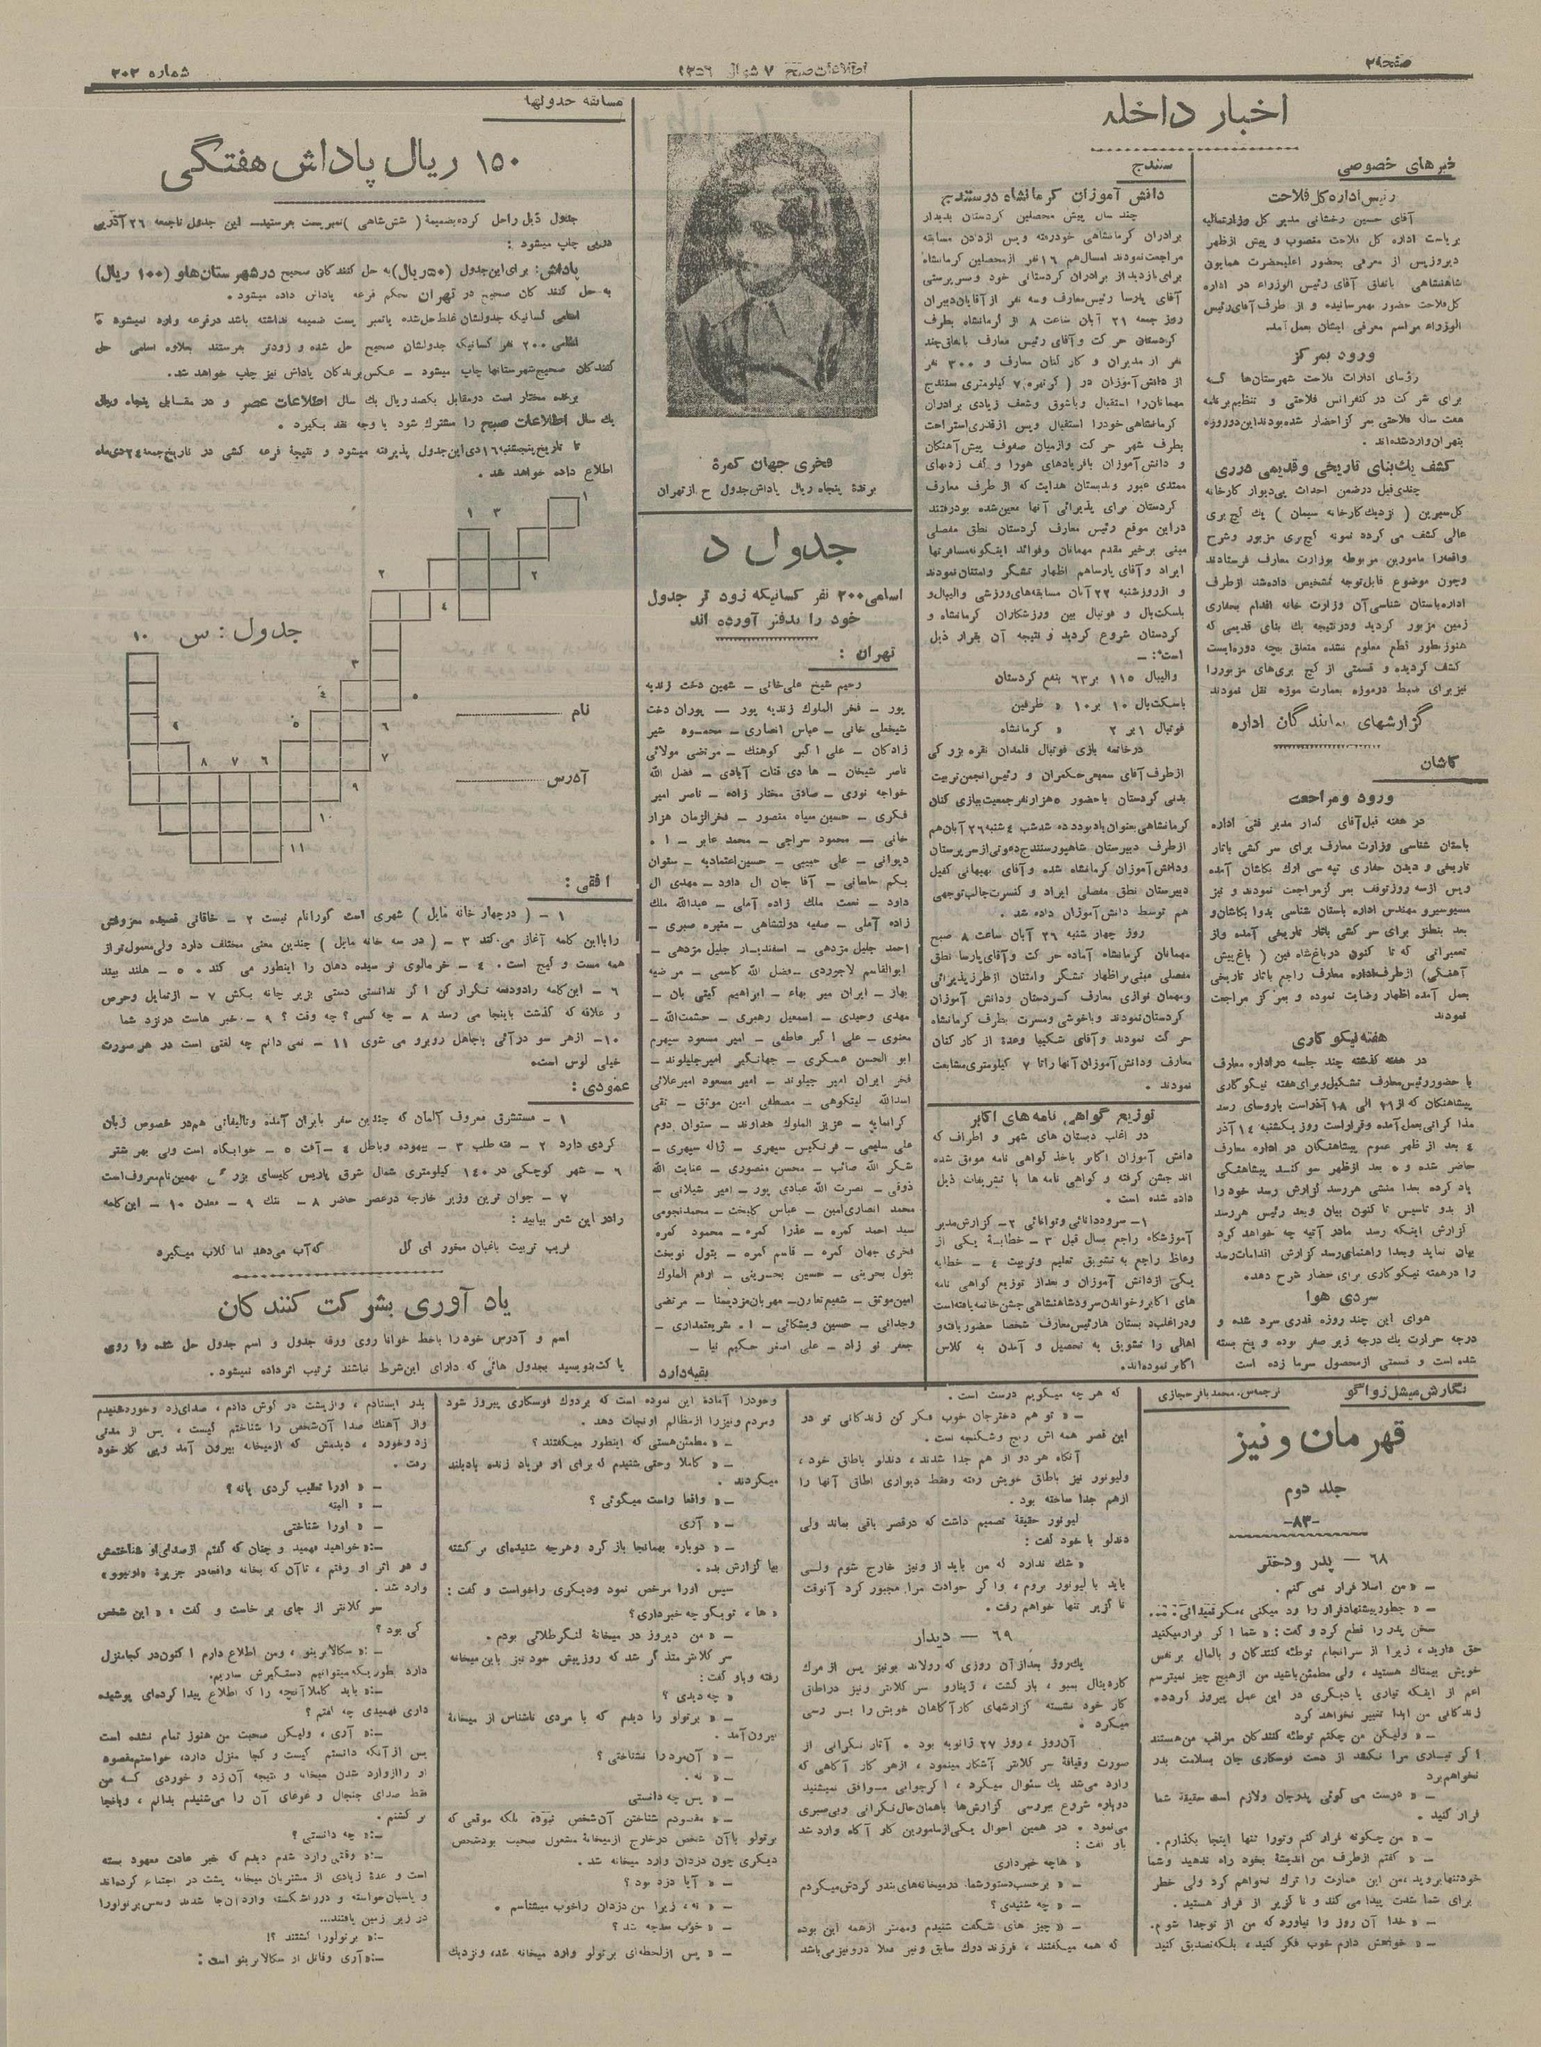 صفحه ۲۹
اطلاعات صبح ۷ شوال ۱۳۵۶
شماره ۳۰۲
اخبار داخله
خبرهای خصوصی
رئیس اداره کل فلاحت
آقای حسین رخشانی مدیر کل وزارت مالیه
بریاست اداره کل فلاحت منصوب و پیش از ظهر
دیروز پس از معرفی بحضور اعلیحضرت همایون
شاهنشاهی باتفاق آقای رئیس الوزراء در اداره
کل فلاحت حضور بهمرسانیده و از طرف آقای رئیس
الوزراء مراسم معرفی ایشان بعمل آمد
ورود بمرکز
رؤسای ادارات فلاحت شهرستان‌ها که
برای شرکت در کنفرانس فلاحتی و تنظیم برنامه
هفت ساله فلاحتی بمرکز احضار شده بودند این دو روزه
بتهران وارد شده‌اند .
کشف یك بنای تاریخی و قدیمی در ری
چندی قبل در ضمن احداث پی دیوار کارخانه
گلیسیرین ( نزدیك کارخانه سیمان ) یك گچ بری
عالی کشف می گردد نمونه گچ بری مزبور و شرح
واقعه را مامورین مربوطه بوزارت معارف فرستادند
و چون موضوع قابل توجه تشخیص داده شد از طرف
اداره باستان شناسی آن وزارت خانه اقدام بحفاری
زمین مزبور گردید و در نتیجه یك بنای قدیمی که
هنوز بطور قطع معلوم نشده متعلق بچه دوره ایست
کشف گردیده و قسمتی از گچ بری‌های مزبور را
نیز برای ضبط در موزه بعمارت موزه نقل نمودند
گزارشهای نمایندگان اداره
کاشان
ورود و مراجعت
در هفته قبل آقای گدار مدیر فنی اداره
باستان شناسی وزارت معارف برای سرکشی بآثار
تاریخی و دیدن حفاری تپه سی الك بکاشان آمده
و پس از سه روز توقف بمرکز مراجعت نمودند و نیز
مسیو سیرو مهندس اداره باستان شناسی بدوا بکاشان و
بعد بنطنز برای سرکشی بآثار تاریخی آمده و از
تعمیراتی که تا کنون در باغ شاه فین ( باغ پیش
آهنگی) از طرف اداره معارف راجع بآثار تاریخی
بعمل آمده اظهار رضایت نموده و بمرکز مراجعت
نمودند
هفته نیکو کاری
در هفته گذشته چند جلسه در اداره معارف
با حضور رئیس معارف تشکیل و برای هفته نیکو کاری
پیشاهنگان که از ۱۱ الی ۱۸ آذر است با روسای رسد
مذاکراتی بعمل آمده و قرار است روز یکشنبه ۱۴ آذر
۴ بعد از ظهر عموم پیشاهنگان در اداره معارف
حاضر شده و ۵ بعد از ظهر سوگند پیشاهنگی
یاد کرده بعدا منشی هر رسد گزارش رسد خود را
از بدو تاسیس تا کنون بیان و بعد رئیس هر رسد
گزارش اینکه رسد مادر آتیه چه خواهد کرد
بیان نماید و بعدا راهنمای رسد گزارش اقدامات رسد
را در هفته نیکو کاری برای حضار شرح دهد.
سردی هوا
هوای این چند روزه قدری سرد شده و
درجه حرارت یك درجه زیر صفر بوده و یخ بسته
شده است و قسمتی از محصول سرما زده است
سنندج
دانش آموزان کرمانشاه در سنندج
چند سال پیش محصلین کردستان بدیدار
برادران کرمانشاهی خود رفته و پس از دادن مسابقه
مراجعت نمودند امسال هم ۱۶ نفر از محصلین کرمانشاه
برای بازدید از برادران کردستانی خود و سرپرستی
آقای پارسا رئیس معارف و سه نفر از آقایان دبیران
روز جمعه ۲۱ آبان ساعت ۸ از کرمانشاه بطرف
کردستان حرکت و آقای رئیس معارف باتفاق چند
نفر از مدیران و کارکنان معارف و ۳۰۰ نفر
از دانش آموزان در ( ۷ کیلومتری سنندج
مهمانان را استقبال و با شوق و شعف زیادی برادران
کرمانشاهی خود را استقبال و پس از قدری استراحت
بطرف شهر حرکت و از میان صفوف پیش آهنگان
و دانش آموزان با فریادهای هورا و کف زدنهای
ممتدی عبور و بدبستان هدایت که از طرف معارف
کردستان برای پذیرائی آنها معین شده بود رفتند
در این موقع رئیس معارف کردستان نطق مفصلی
مبنی بر خیر مقدم مهمانان و فوائد اینگونه مسافرتها
ایراد و آقای پارسا هم اظهار تشکر و امتنان نمودند
و از روز شنبه ۲۲ آبان مسابقه‌های ورزشی والیبال و
باسکت بال و فوتبال بین ورزشکاران کرمانشاه و
کردستان شروع گردید و نتیجه آن بقرار ذیل
است :ـ
والیبال ۱۱۵ بر ۶۳ بنفع کردستان
باسکت بال ۱۰ بر ۱۰ « طرفین
فوتبال ۱ بر ۲ « کرمانشاه
در خاتمه بازی فوتبال قلمدان نقره بزرگی
از طرف آقای سمیعی حکمران و رئیس انجمن تربیت
بدنی کردستان با حضور ۵ هزار نفر جمعیت ببازی کنان
کرمانشاهی بعنوان یادبود داده شد شب ۴ شنبه ۲۶ آبان هم
از طرف دبیرستان شاهپور سنندج دعوتی از سرپرستان
و دانش آموزان کرمانشاه شده و آقای بهبهانی کفیل
دبیرستان نطق مفصلی ایراد و کنسرت جالب توجهی
هم توسط دانش آموزان داده شد .
روز چهار شنبه ۲۶ آبان ساعت ۸ صبح
مهمانان کرمانشاه آماده حرکت و آقای پارسا نطق
مفصلی مبنی بر اظهار تشکر و امتنان از طرز پذیرائی
و مهمان نوازی معارف کردستان و دانش آموزان
کردستان نمودند و با خوشی و مسرت بطرف کرمانشاه
حرکت نمودند و آقای شکیبا وعده از کارکنان
معارف و دانش آموزان آنها را تا ۷ کیلومتری مشایعت
نمودند .
توزیع گواهی نامه های اکابر
در اغلب دبستان های شهر و اطراف که
دانش آموزان اکابر باخذ گواهی نامه موفق شده
اند جشن گرفته و گواهی نامه ها با تشریفات ذیل
داده شده است .
۱ـ سرود دانائی و توانائی ۲ـ گزارش مدیر
آموزشگاه راجع بسال قبل ۳ ـ خطابهٔ یکی از
وعاظ راجع به تشویق تعلیم و تربیت ۴ ـ خطابه
یکی از دانش آموزان و بعد از توزیع گواهی نامه
های اکابر و خواندن سرود شاهنشاهی جشن خاتمه یافته است
و در اغلب دبستان ها رئیس معارف شخصا حضور یافته و
اهالی را تشویق به تحصیل و آمدن به کلاس
اکابر نموده‌اند.
فخری جهان کمرهٔ
برندهٔ پنجاه ریال پاداش جدول ح از تهران
جدول د
اسامی ۲۰۰ نفر کسانیکه زود تر جدول
خود را بدفتر آورده اند
تهران :
رحیم شیخ علی خانی ـ شهین دخت زندیه
پور ـ فخر الملوك زندیه پور ـ پوران دخت
شیخعلی خانی ـ عباس انصاری ـ محمود شیر
زادکان ـ علی اکبر کوهنك ـ مرتضی مولائی
ناصر شیخان ـ هادی قنات آبادی ـ فضل الله
خواجه نوری ـ صادق مختار زاده ـ ناصر امیر
فکری ـ حسین سیاه منصور ـ فخرالزمان هزار
خانی ـ محمود سراجی ـ محمد عابر ـ ا .
دیوانی ـ علی حبیبی ـ حسین اعتمادیه ـ ستوان
یکم ـ آقا جان ال داود ـ مهدی ال
داود ـ نعمت ملك زاده آملی ـ عبدالله ملك
زاده آملی ـ صفیه دولتشاهی ـ منیره صبری ـ
احمد جلیل مژدهی ـ اسفندیار جلیل مژدهی ـ
ابوالقاسم لاجوردی ـ فضل الله کاسمی ـ مرضیه
بهار ـ ایران میر بهاء ـ ابراهیم گیتی بان ـ
مهدی وحیدی ـ اسمعیل رهبری ـ حشمت الله ـ
معنوی ـ علی اکبر عاطفی ـ امیر مسعود سپهرم
ابو الحسن عسکری ـ جهانگیر امیرجلیلوند ـ
فخر ایران امیر جیلوند ـ امیر مسعود امیرعلائی
اسدالله لیتکوهی ـ مصطفی امین موثق ـ تقی
ـ عزیز الملوك هداوند ـ ستوان دوم
علی سلیمی ـ فرنگیس سپهری ـ ژاله سپهری ـ
شکر الله صائب ـ محسن منصوری ـ عنایت الله
ذوقی ـ نصرت الله عبادی پور ـ امیر شیلاتی ـ
محمد انصاری امین ـ عباس کلبخت ـ محمد نجومی
سید احمد کمره ـ عذرا کمره ـ محمود کمره
فخری جهان کمره ـ قاسم کمره ـ بتول نوبخت
بتول بحرینی ـ حسین بحرینی ـ ارفع الملوك
امین موثق ـ شفیع تعاون ـ مهربان مزدیسنا ـ مرتضی
وجدانی ـ حسین ویشکائی ـ ا . شریعتمداری ـ
جعفر نو زاد ـ علی اصغر حکیم نیا ـ
بقیه دارد
مسابقه جدولها
۱۵۰ ریال پاداش هفتگی
جدول ذیل را حل کرده بضمیمهٔ ( شش شاهی ) تمبر پست بفرستید. این جدول تا جمعه ۲۶ آذر پی
در پی چاپ میشود :
پاداش: برای این جدول (۵۰ ریال) به حل کنندگان صحیح در شهرستان‌ها و (۱۰۰ ریال)
به حل کنندگان صحیح در تهران بحکم قرعه پاداش داده میشود .
اسامی کسانیکه جدولشان غلط حل شده یا تمبر پست ضمیمه نداشته باشد در قرعه وارد نمیشود
اسامی ۲۰۰ نفر کسانیکه جدولشان صحیح حل شده و زودتر بفرستند بعلاوه اسامی حل
کنندگان صحیح شهرستانها چاپ میشود ـ عکس برندگان پاداش نیز چاپ خواهد شد.
برنده مختار است در مقابل یکصد ریال یك سال اطلاعات عصر و در مقابل پنجاه ریال
یك سال اطلاعات صبح را مشترك شود یا وجه نقد بگیرد .
تا تاریخ پنجشنبه ۱۶ دی این جدول پذیرفته میشود و نتیجهٔ قرعه کشی در تاریخ جمعه ۲۴ دی ماه
اطلاع داده خواهد شد .
جدول : س
نام
آدرس
افقی :
۱ ـ ( در چهار خانه مایل ) شهری است گورانام نیست ۲ ـ خاقانی قصیده معروفش
را با این کلمه آغاز می‌کند ۳ ـ ( در سه خانه مایل ) چندین معنی مختلف دارد ولی معمول تر از
همه مست و گیج است . ۴ ـ خرمالوی نرسیده دهان را اینطور می کند . ۵ ـ هلند ببند
۶ ـ این کلمه را دو دفعه تکرار کن اگر ندانستی دستی بزیر چانه بکش ۷ ـ از تمایل و حرص
و علاقه که گذشت باینجا می رسد ۸ ـ چه کسی؟ چه وقت ؟ ۹ ـ خبر هاست در نزد شما
۱۰ـ از هر سو در آئی باجاهل روبرو می شوی ۱۱ ـ نمی دانم چه لغتی است در هر صورت
خیلی لوس است.
عمودی :
۱ ـ مستشرق معروف آلمان که چندین سفر بایران آمده و تالیفاتی هم در خصوص زبان
کردی دارد ۲ ـ فته طلب ۳ ـ بیهوده و باطل ۴ ـ آفت ۵ ـ خوابگاه است ولی بهر شتر
۶ ـ شهر کوچکی در ۱۴۰ کیلومتری شمال شرق پاریس کلیسای بزرگش بهمین نام معروف است
۷ ـ جوان ترین وزیر خارجه در عصر حاضر ۸ ـ ننك ۹ ـ معدن ۱۰ ـ این کلمه
را در این شعر بیابید :
فریب تربیت باغبان مخور ای گل
که آب می‌دهد اما گلاب میگیرد
یاد آوری بشرکت کنندگان
اسم و آدرس خود را باخط خوانا روی ورقه جدول و اسم جدول حل شده را روی
پاکت بنویسید بجدول هائی که دارای این شرط نباشند ترتیب اثر داده نمیشود .
نگارش میشل زواگو
ترجمه س. محمد باقر حجازی
قهرمان ونیز
جلد دوم
ـ۸۳ـ
۶۸ ـ پدر و دختر
ـ « من اصلا فرار نمی کنم .
ـ « چطور پیشنهاد فرار را رد میکنی ، مگر نمیدانی؟ ...
سخن پدر را قطع کرد و گفت : « شما اگر فرار میکنید
حق دارید ، زیرا از سرانجام توطئه کنندگان و بالمال بر نفس
خویش بیمناك هستید ، ولی مطمئن باشید من از هیچ چیز نمیترسم
اعم از اینکه تیاری یا دیگری در این عمل پیروز گردد،
زندگانی من ابدا تغییر نخواهد کرد
ـ « ولیکن من چکنم توطئه کنندگان مراقب من هستند
اگر تیساری مرا نکشد از دست فوسکاری جان بسلامت بدر
نخواهم برد
ـ « درست می گوئی پدرجان ولازم است حقیقة شما
فرار کنید .
ـ « من چگونه فرار کنم و تورا تنها اینجا بگذارم .
ـ « گفتم از طرف من اندیشهٔ بخود راه ندهید و شما
خود تنها بروید ، من این عمارت را ترك نخواهم کرد ولی خطر
برای شما شدت پیدا می کند و ناگزیر از فرار هستید .
ـ « خدا آن روز را نیاورد که من از تو جدا شوم .
ـ « خواهش دارم خوب فکر کنید ، بلکه تصدیق کنید
که هر چه میگویم درست است .
ـ « تو هم دخترجان خوب فکر کن زندگانی تو در
این قصر همه اش رنج و شکنجه است .
آنگاه هر دو از هم جدا شدند ، دندلو باطاق خود ،
و لیونور نیز باطاق خویش رفته و فقط دیواری اطاق آنها را
از هم جدا ساخته بود .
لیونور حقیقة تصمیم داشت که در قصر باقی بماند ولی
دندلو با خود گفت :
« شك ندارد که من باید از ونیز خارج شوم ولی
باید با لیونور بروم ، و اگر حوادث مرا مجبور کرد آنوقت
ناگزیر تنها خواهم رفت .
۶۹ ـ دیدار
یك روز بعد از آن روزی که رولاند بونیز پس از مرك
کاردینال بمبو ، باز گشت ، ژینارو سر کلانتر ونیز در اطاق
کار خود نشسته گزارشهای کارآگاهان خویش را بررسی
میکرد .
آن روز ، روز ۲۷ ژانویه بود . آثار نگرانی از
صورت و قیافهٔ سر کلانتر آشکار مینمود ، از هر کار آگاهی که
وارد می‌شد یك سئوال میکرد ، اگر جوابی موافق نمیشنید
دوباره شروع ببررسی گزارش‌ها باهمان حال نگرانی و بی‌صبری
می‌نمود . در همین احوال یکی از مامورین کار آگاه وارد شد
باو گفت :
« هاچه خبر داری
ـ « برحسب دستور شما در میخانه‌های بندر گردش میکردم
ـ « چه شنیدی ؟
ـ « چیز های شگفت شنیدم و مهمتر از همه این بوده
که همه میگفتند ، فرزند دوك سابق ونیز فعلا در ونیز می باشد
و خود را آمادهٔ این نموده است که بر دوك فوسکاری پیروز شود
و مردم ونیز را از مظالم او نجات دهد .
ـ « مطمئن هستی که اینطور میگفتند ؟
ـ « کاملا وحتی شنیدم که برای او فریاد زنده باد بلند
میکردند .
ـ « واقعا راست میگوئی ؟
ـ « آری
ـ « دوباره بهمانجا باز گرد و هرچه شنیده‌ای برگشته
بما گزارش بده .
سپس او را مرخص نمود و دیگری را خواست و گفت :
« ها ، تو بگو چه خبر داری؟
ـ « من دیروز در میخانهٔ لنگر طلائی بودم .
سر کلانتر متذکر شد که روز پیش خود نیز باین میخانه
رفته و باو گفت :
« چه دیدی ؟
ـ « برتولو را دیدم که با مردی ناشناس از میخانهٔ
بیرون آمد .
ـ « آن مرد را نشناختی ؟
ـ « نه .
ـ « پس چه دانستی
ـ « مقصودم شناختن آن شخص نبوده بلکه موقعی که
برتولو با آن شخص در خارج از میخانه مشغول صحبت بود شخص
دیگری چون دزدان وارد میخانه شد .
ـ « آیا دزد بود ؟
ـ « نه ، زیرا من دزدان را خوب میشناسم .
ـ « خوب بعد چه شد ؟
ـ « پس از لحظه‌ای برتولو وارد میخانه شد، و نزدیك
بدر ایستادم ، و از پشت در گوش دادم ، صدای زد و خورد شنیدم
و از آهنك صدا آن شخص را شناختم کیست ، پس از مدتی
زد و خورد ، دیدمش که از میخانه بیرون آمد و پی کار خود
رفت .
ـ « او را تعقیب کردی یا نه ؟
ـ « البته
ـ « او را شناختی
ـ:« خواهید فهمید و چنان که گفتم از صدای او شناختمش
و هر اثر او رفتم ، تا آن که بخانه واقعه در جزیرهٔ «اولیوو»
وارد شد .
سر کلانتر از جای برخاست و گفت : « این شخص
کی بود ؟
ـ:« سکالابرینو ، و من اطلاع دارم اکنون در کجا منزل
دارد بطوریکه میتوانیم دستگیرش سازیم.
ـ:« باید کاملا آنچه را که اطلاع پیدا کرده‌ای پوشیده
داری فهمیدی چه گفتم ؟
ـ:« آری ، ولیکن صحبت من هنوز تمام نشده است
پس از آنکه دانستم کیست و کجا منزل دارد، خواستم مقصود
او را از وارد شدن میخانه و نتیجه آن زد و خوردی که من
فقط صدای جنجال و غوغای آن را می‌شنیدم بدانم ، و بانجا
برگشتم .
ـ:« چه دانستی ؟
ـ:« وقتی وارد شدم دیدم که خبر عادت معهود بسته
است و عدهٔ زیادی از مشتریان میخانه پشت در اجتماع کرده‌اند
و پاسبان خواسته و در را شکسته وارد آن جا شدند و سپس برتولو را
در زیر زمین یافتند...
ـ:« برتولو را کشتند ؟!
ـ:« آری و قاتل او سکالابرینو است :